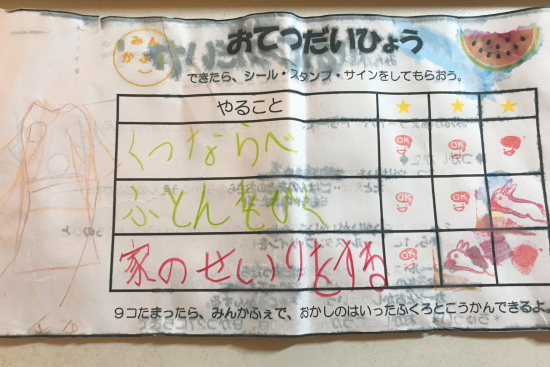 みんかふぇ
おてつだいひょう
できたら、シール・スタンプ・サインをしてもらおう。
やること
くつならべ
OK
OK
ふとんをひく
OK
OK
家のせいりをする
OK
9コたまったら、みんかふぇで、おかしのはいったふくろとこうかんできるよ。